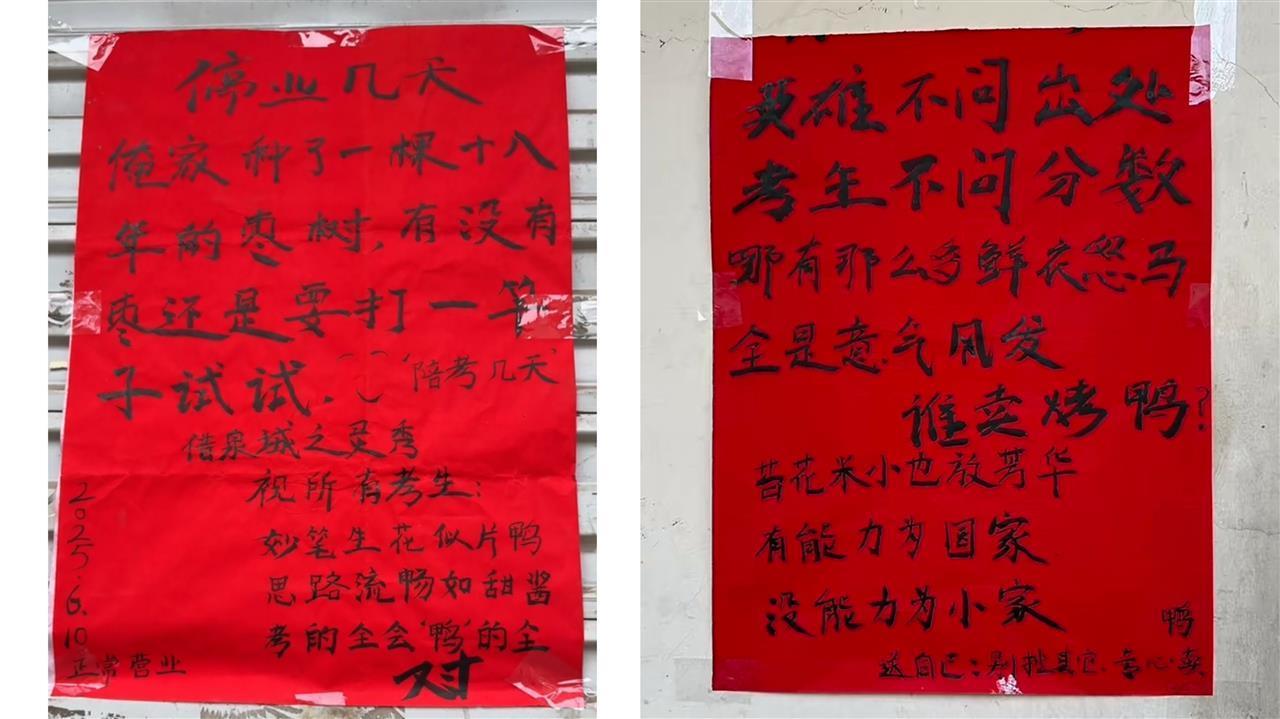 停业几天
俺家种了一棵十八
年的枣树,有没有
枣还是要打一竿
子试试.
陪考几天
借泉城之灵秀
祝所有考生:
妙笔生花似片鸭
思路流畅如甜酱
考的全会"鸭"的全
对
2025.6.10
正常营业
英雄不问出处
考生不问分数
哪有那么多鲜衣怒马
全是意气风发
谁卖烤鸭?
苔花米小也放芳华
有能力为国家
没能力为小家
送自己:别扯其它.专心卖
鸭